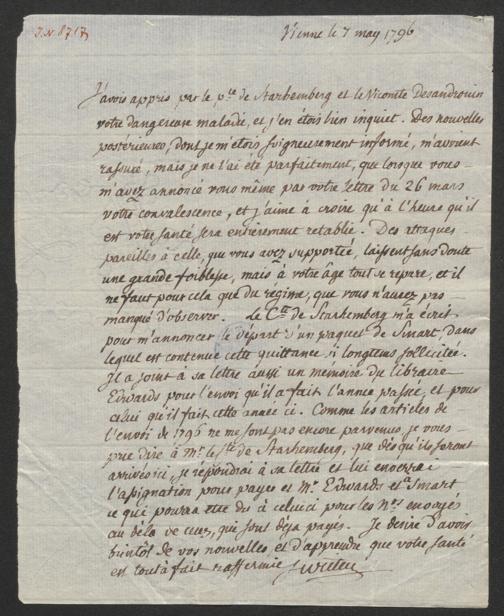 J.N. 8717
Vienne le 7 may 1796
J'avois appris par le pce de Starhemberg et le Vicomte Desandrouin
votre dangereuse maladie, et j'en étois bien inquiet. Des nouvelles
postérieures, dont je m'étois soigneusement informé, m'avoient
rassuré, mais je ne l'ai été parfaitement, que lorsque vous
m'avez annoncé vous même par votre lettre du 26 mars
votre convalescence, et j'aime à croire qu'à l'heure qu'il
est votre santé sera entièrement retablie. Des attaques
pareilles à celle, que vous avez supportée, laissent sans doute
une grande foiblesse, mais à votre âge tout se repare, et il
ne faut pour cela que du régime, que vous n'aurez pas
manqué d'observer. Le Cte de Starhemberg m'a écrit
pour m'annoncer le départ d'un paquet de Smart, dans
lequel est contenue cette quittance si longtems sollicitée.
Il a joint à sa lettre aussi un memoire du libraire
Edwards pour l'envoi qu'il a fait l'année passée, et pour
celui qu'il fait cette année ci. Comme les articles de
l'envoi de 1796 ne me sont pas encore parvenus, je vous
prie dire à Mr le Cte de Starhemberg, que dès qu'ils seront
arrivés ici, je repondrai à sa lettre et lui enverrai
l'assignation pour payer et Mr Edwards et a Smart
ce qui pourra etre du à celuici pour les Nos envoyés
au déla de ceux, qui sont déja payés. Je desire d'avoir
bientôt de vos nouvelles et d'apprendre que votre santé
est tout à fait raffermie